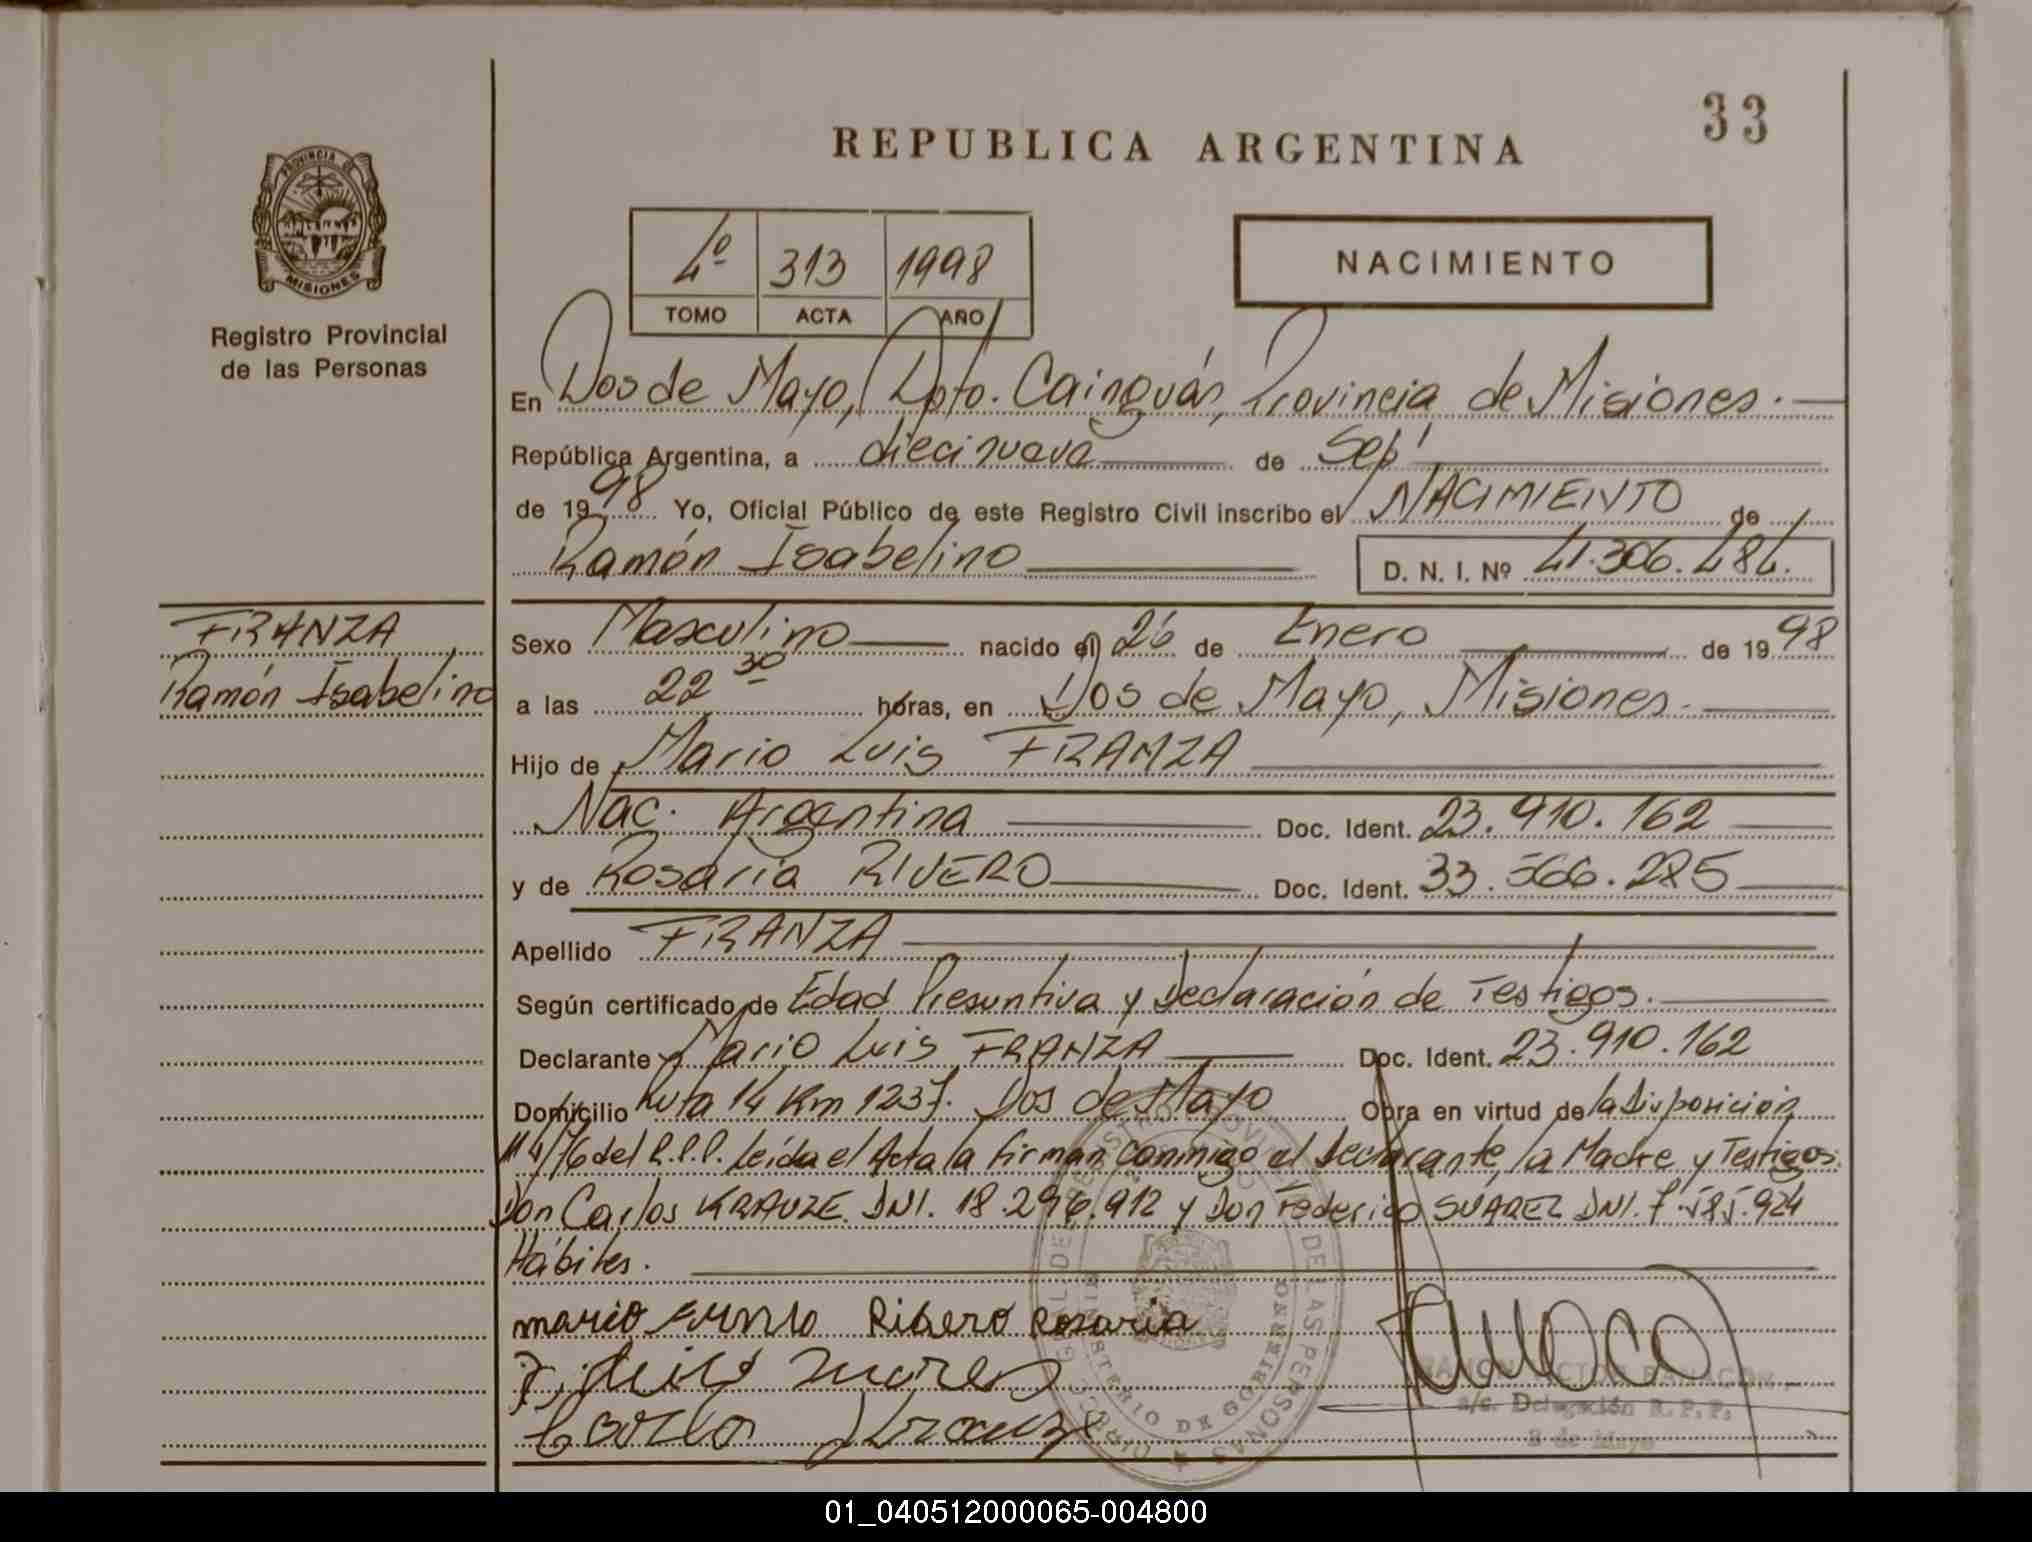 33
REPUBLICA ARGENTINA
PROVINCIA DE
MISIONES
Registro Provincial
de las Personas
4º 313 1998
TOMO ACTA AÑO
NACIMIENTO
En Dos de Mayo, Dpto. Cainguás, Provincia de Misiones.
República Argentina, a diecinueve de Sep'
de 1998 Yo, Oficial Público de este Registro Civil inscribo el NACIMIENTO de
Ramón Isabelino D. N. I. Nº 41.306.484.
FRANZA
Ramón Isabelino
Sexo Masculino nacido el 26 de Enero de 1998
a las 22 30 horas, en Dos de Mayo, Misiones.
Hijo de Mario Luis FRANZA
Nac. Argentina Doc. Ident. 23.910.162
y de Rosaria RIVERO Doc. Ident. 33.566.285
Apellido FRANZA
Según certificado de Edad Presuntiva y Declaración de Testigos.
Declarante Mario Luis FRANZA Doc. Ident. 23.910.162
Domicilio Ruta 14 Km 1237. Dos de Mayo Obra en virtud de la Disposición
4/76 del R.P.P. Leída el Acta la firman conmigo el Declarante, la Madre y Testigos.
Don Carlos KRAUZE. DNI. 18.296.912 y Don Federico SUAREZ DNI. 7.585.924
Hábiles.
mario Ribero Rosaria
Carlos Krauze
REGISTRO PROVINCIAL DE LAS PERSONAS
MINISTERIO DE GOBIERNO
RAMON VICTOR
a/c. Delegación R.P.P.
2 de Mayo
01_040512000065-004800